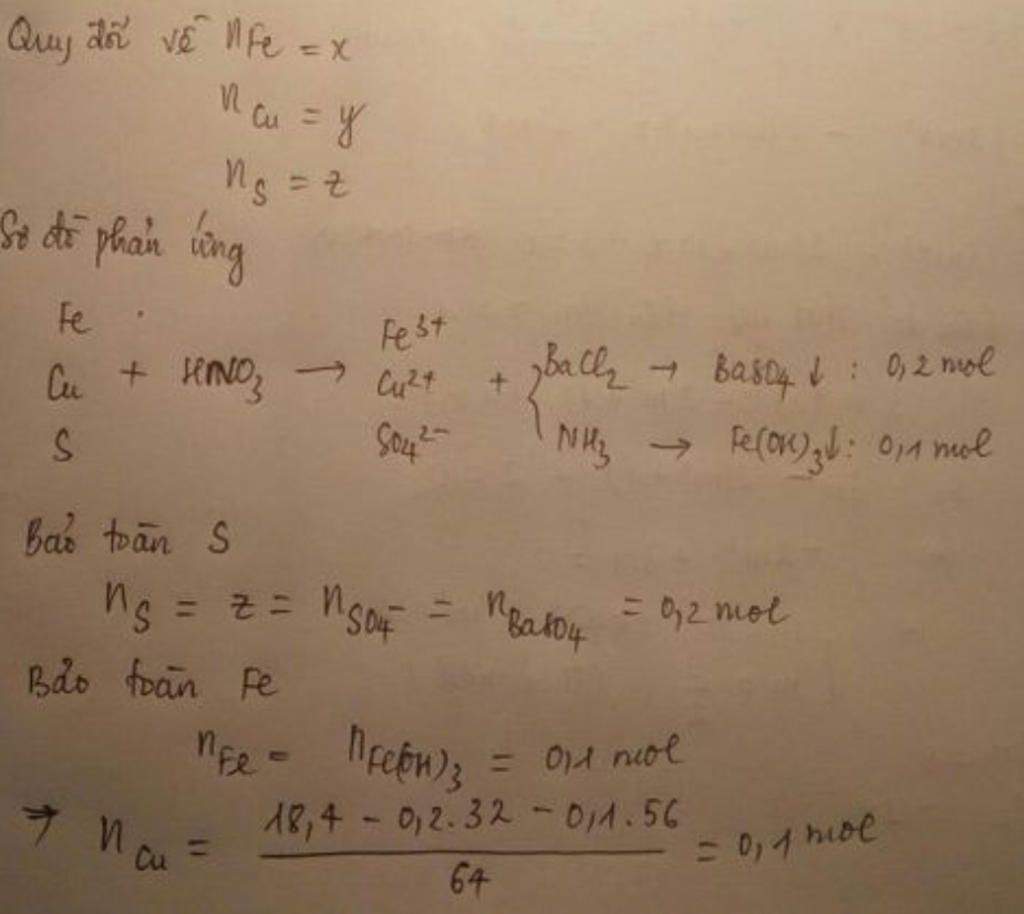 Quy đổi về nFe = x
nCu = y
nS = z
Sơ đồ phản ứng
Fe
Cu + HNO3 → Fe3+ Cu2+ SO42- + { BaCl2 → BaSO4 ↓ : 0,2 mol
S NH3 → Fe(OH)3↓ : 0,1 mol
Bảo toàn S
nS = z = nSO4- = nBaSO4 = 0,2 mol
Bảo toàn Fe
nFe = nFe(OH)3 = 0,1 mol
→ nCu = (18,4 - 0,2.32 - 0,1.56) / 64 = 0,1 mol